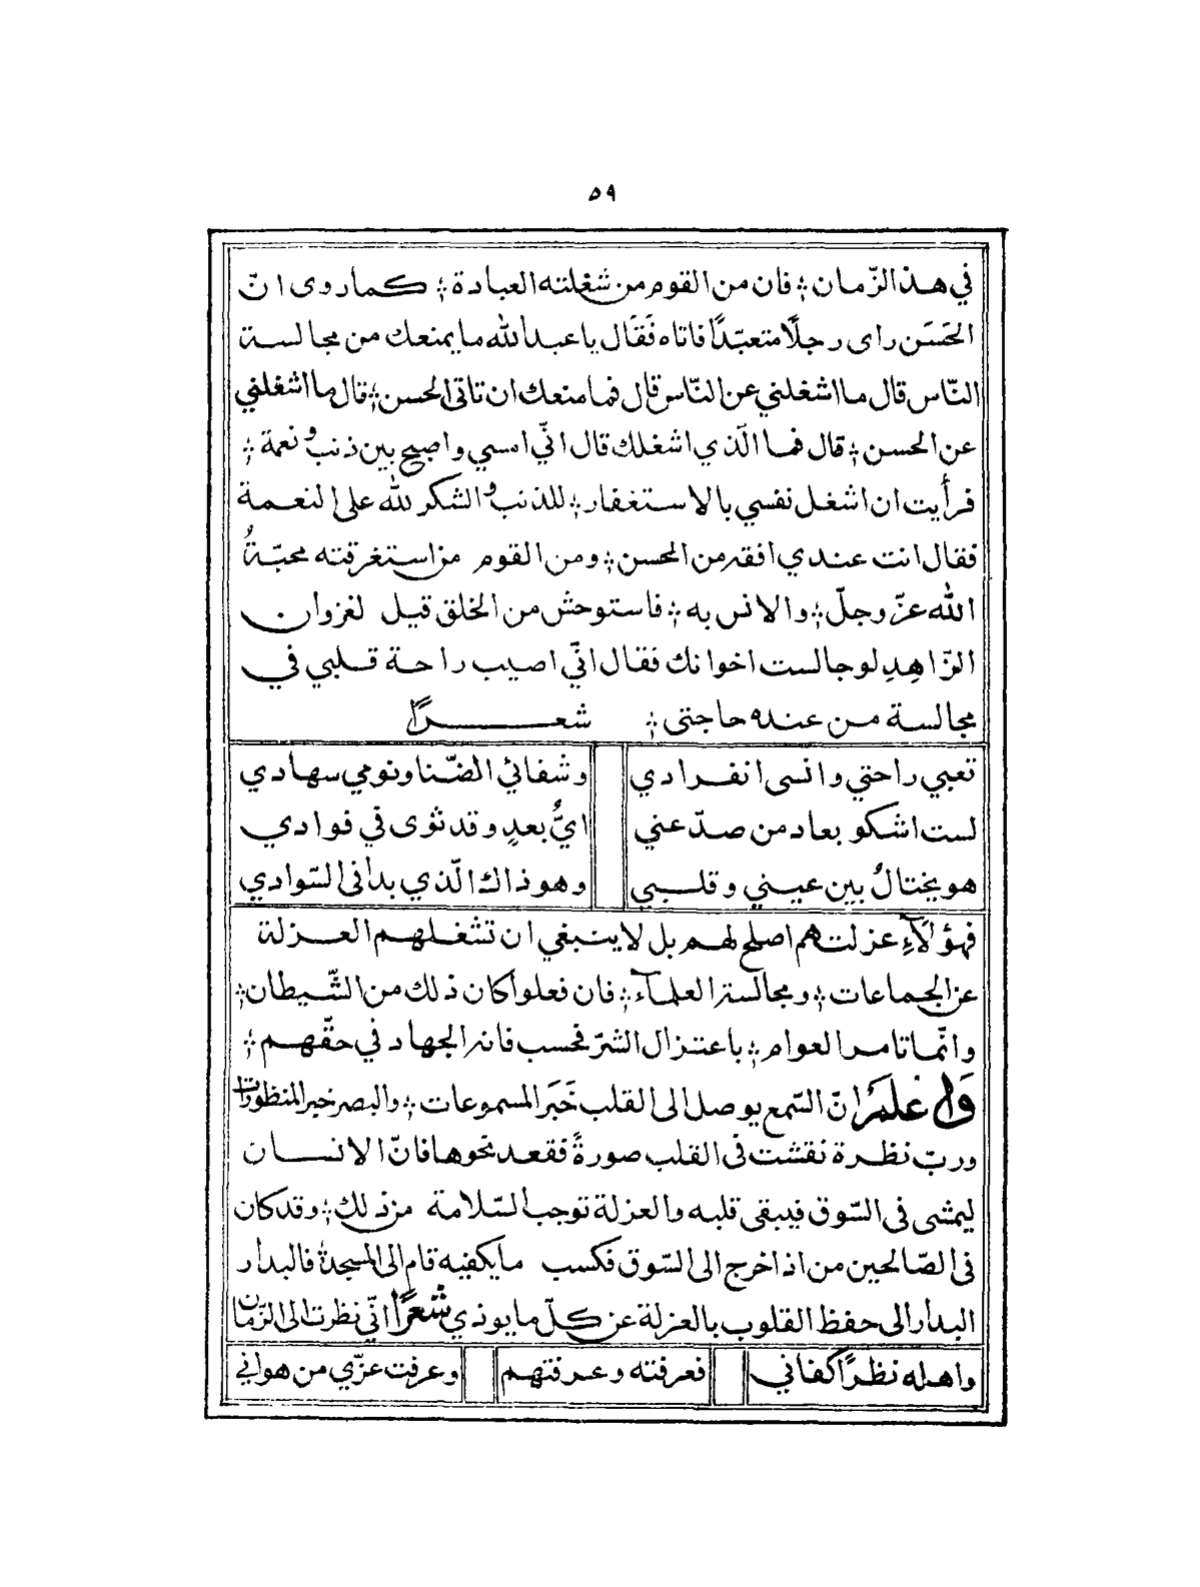 ٥٩
في هـذ الزّمـان ؛ فان من القوم من شغلته العبادة ؛ كـما روى انّ
الحَسَن راى رجلًا متعبّدًا فاتاه فَقَال يا عبد الله ما يمنعك من مجالسـة
النّاس قال مـا اشغلني عن النّاس قال فما منعك ان تاتي الحسن ؛ قال ما اشغلني
عن الحسن ؛ قال فما الّذي اشغلك قال انّي امسي واصبح بين ذنب و نعمة ؛
فرأيت ان اشغل نفسي بالاستغفار ؛ للذنب و الشكر لله على النعمـة
فقال انت عندي افقه من الحسن ؛ ومن القوم من استغرقته محبّةُ
الله عزّ وجلّ ؛ والانس به ؛ فاستوحش من الخلق قيل لغزوان
الزّاهِدِ لو جالست اخوانك فقال انّي اصيب راحة قلبي في
مجالسة من عنده حاجتي ؛ شعـــرًا
تعبي راحتي وانسى انفرادي وشفائي الضّنا ونومي سهادي
لست اشكو بعاد من صدّ عني ايُّ بعدٍ وقد ثوى في فوادي
هو يختالُ بين عيني وقلبي وهو ذاك الّذي بدا في السّوادي
فهؤلآءِ عزلتهم اصلح لهم بل لا ينبغي ان تشغلهم العزلة
عن الجماعات ؛ ومجالسة العلمآء ؛ فان فعلوا كان ذلك من الشّيطان ؛
وانّما تامر العوام ؛ باعتزال الشرّ فحسب فانه الجهاد في حقّهم ؛
وَاعْلَمْ انّ السّمع يوصل الى القلب خَبَر المسموعات ؛ والبصر خبر المنظورات
وربّ نظرة نقشت في القلب صورةً فقعد نحوها فانّ الانسان
ليمشى في السّوق فيبقى قلبه والعزلة توجب السّلامة من ذلك ؛ وقد كان
في الصّالحين من اذا خرج الى السّوق فكسب ما يكفيه قام الى المسجد فالبدار
البدار الى حفظ القلوب بالعزلة عن كلّ ما يوذي شعرًا انّي نظرت الى الزّمان
واهله نظرًا كفاني فعرفته وعرفتهم وعرفت عزّي من هواني